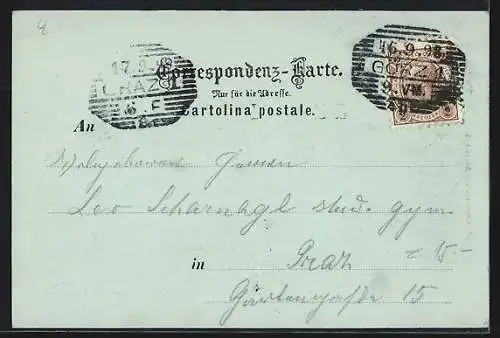 17.9.98
GRAZ 1
6.F
16.9.98
GÖRZ 1
Correspondenz-Karte.
Nur für die Adresse.
Cartolina postale.
An
Leo Scharnagl stud. gym.
in Graz
= 15 -
Gartengasse 15